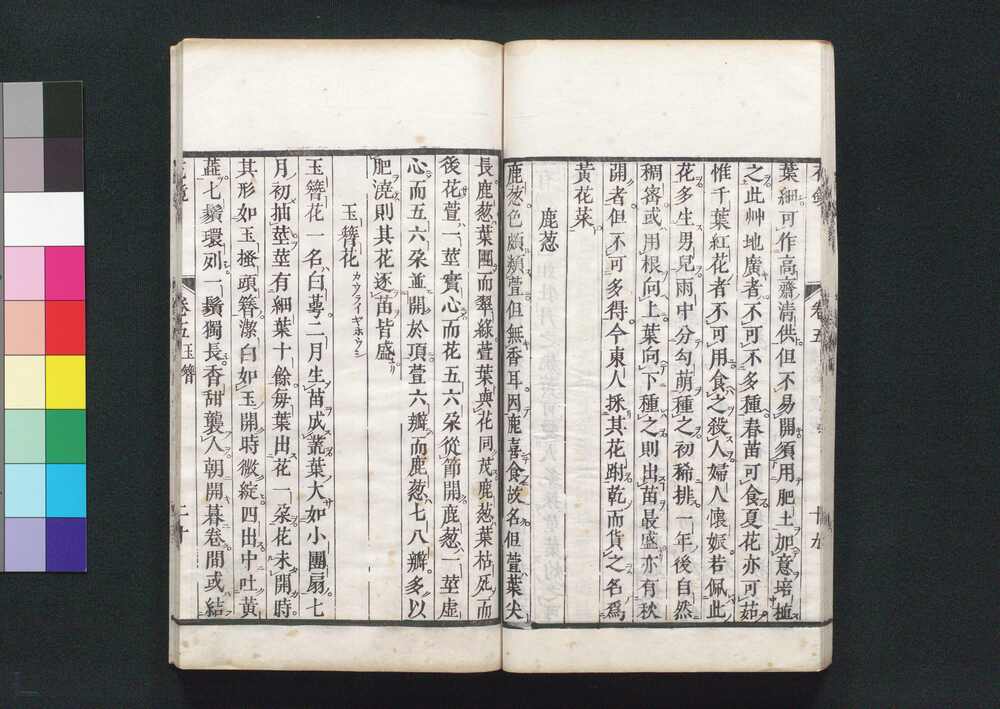 葉細可作高齋清供但不易開須用肥土加意培植
之此艸地廣者不可不多種春苗可食夏花亦可茹
惟千葉紅花者不可用食之殺人婦人懷娠若佩此
花多生男兒雨中分勾萌種之初稀排一年後自然
稠宻或用根向上葉向下種之則出苗最盛亦有秋
開者但不可多得今東人採其花跗乾而貨之名爲
黃花菜
鹿葱
鹿葱色頗類萱但無香耳因鹿喜食故名但萱葉尖
長鹿葱葉團而翠綠萱葉與花同茂鹿葱葉枯死而
後花萱一莖實心而花五六朶從節開鹿葱一莖虛
心而五六朶並開於頂萱六瓣而鹿葱七八瓣多以
肥澆則其花逐苗皆盛
玉簪花 カウライギボウシ
玉簪花一名白萼二月生苗成叢葉大如小團扇七
月初抽莖莖有細葉十餘每葉出花一朶花未開時
其形如玉搔頭簪潔白如玉開時微綻四出中吐黃
蕋七鬚環列一鬚獨長香甜襲人朝開暮卷間或結
卷五
十九
卷五 玉簪
二十